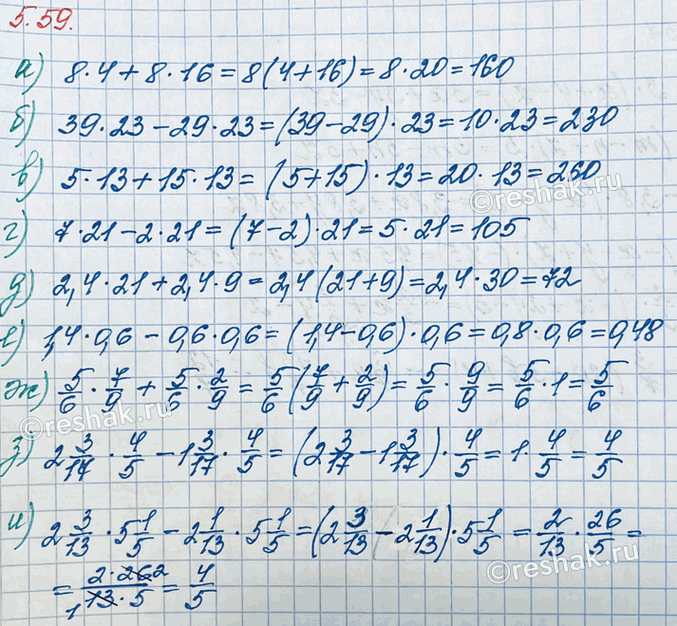 5.59.
а) 8·4+8·16=8(4+16)=8·20=160
б) 39·23−29·23=(39−29)·23=10·23=230
в) 5·13+15·13=(5+15)·13=20·13=260
г) 7·21−2·21=(7−2)·21=5·21=105
д) 2,4·21+2,4·9=2,4(21+9)=2,4·30=72
е) 1,4·0,6−0,6·0,6=(1,4−0,6)·0,6=0,8·0,6=0,48
ж) 5/6·7/9+5/6·2/9=5/6(7/9+2/9)=5/6·9/9=5/6·1=5/6
з) 2 3/17·4/5−1 3/17·4/5=(2 3/17−1 3/17)·4/5=1·4/5=4/5
и) 2 3/13·5 1/5−2 1/13·5 1/5=(2 3/13−2 1/13)·5 1/5=2/13·26/5=
= 2·26 2/1 13·5=4/5
©reshak.ru
©reshak.ru
©reshak.ru